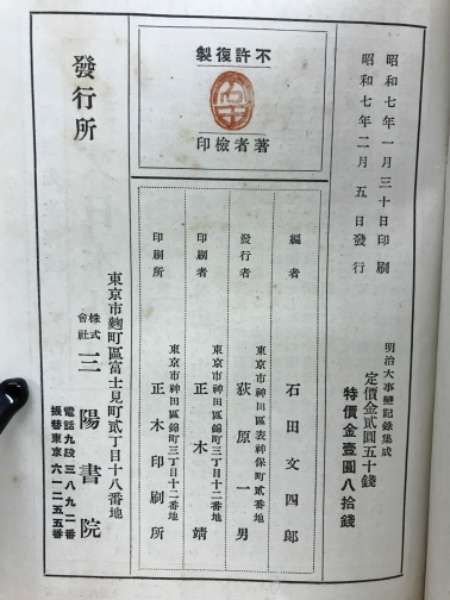 昭和七年一月三十日印刷
昭和七年二月五日發行
明治大事變記錄集成
定價金貳圓五十錢
特價金壹圓八拾錢
不許復製
著者檢印
編者
石田文四郎
發行者
東京市神田區表神保町貳番地
荻原一男
印刷者
東京市神田區錦町三丁目十二番地
正木靖
印刷所
東京市神田區錦町三丁目十二番地
正木印刷所
發行所
東京市麴町區富士見町貳丁目十八番地
株式會社三陽書院
電話九段三八九二番
振替東京六一二五五番